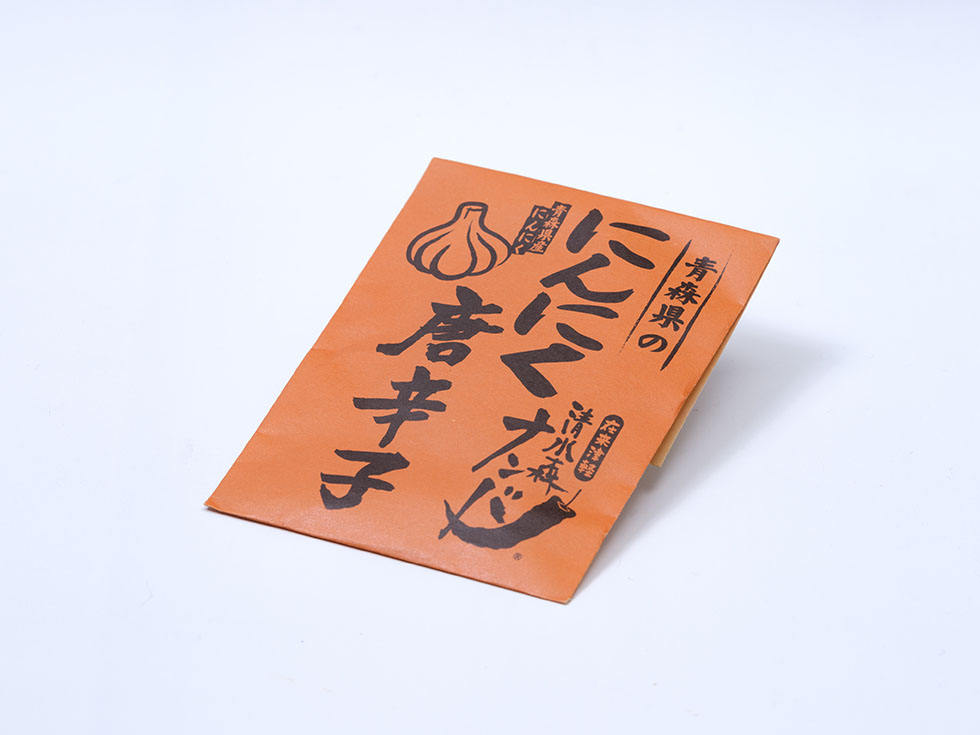 青森県の
にんにく
唐辛子
青森県産
にんにく
在来津軽
清水森
ナンバ
®